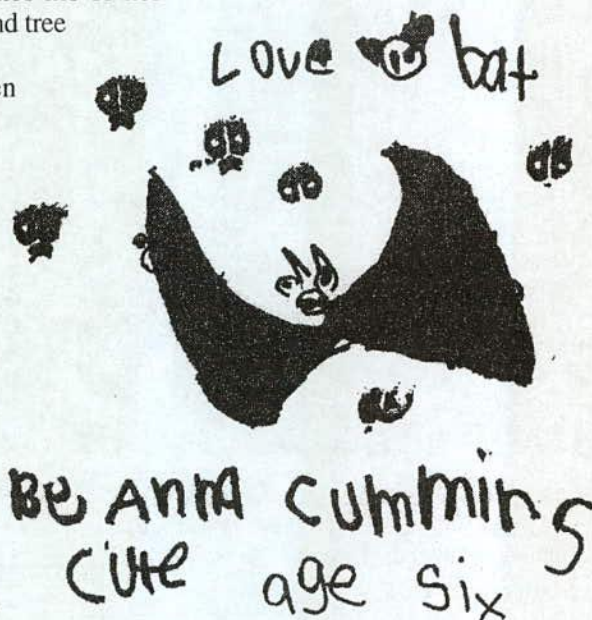 nd tree
en
Love bat
Be Anna Cummins
Cute age six